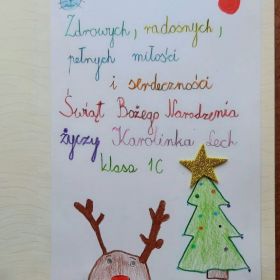 Zdrowych, radosnych,
pełnych miłości
i serdeczności
Świąt Bożego Narodzenia
życzy Karolinka Lech
klasa 1C